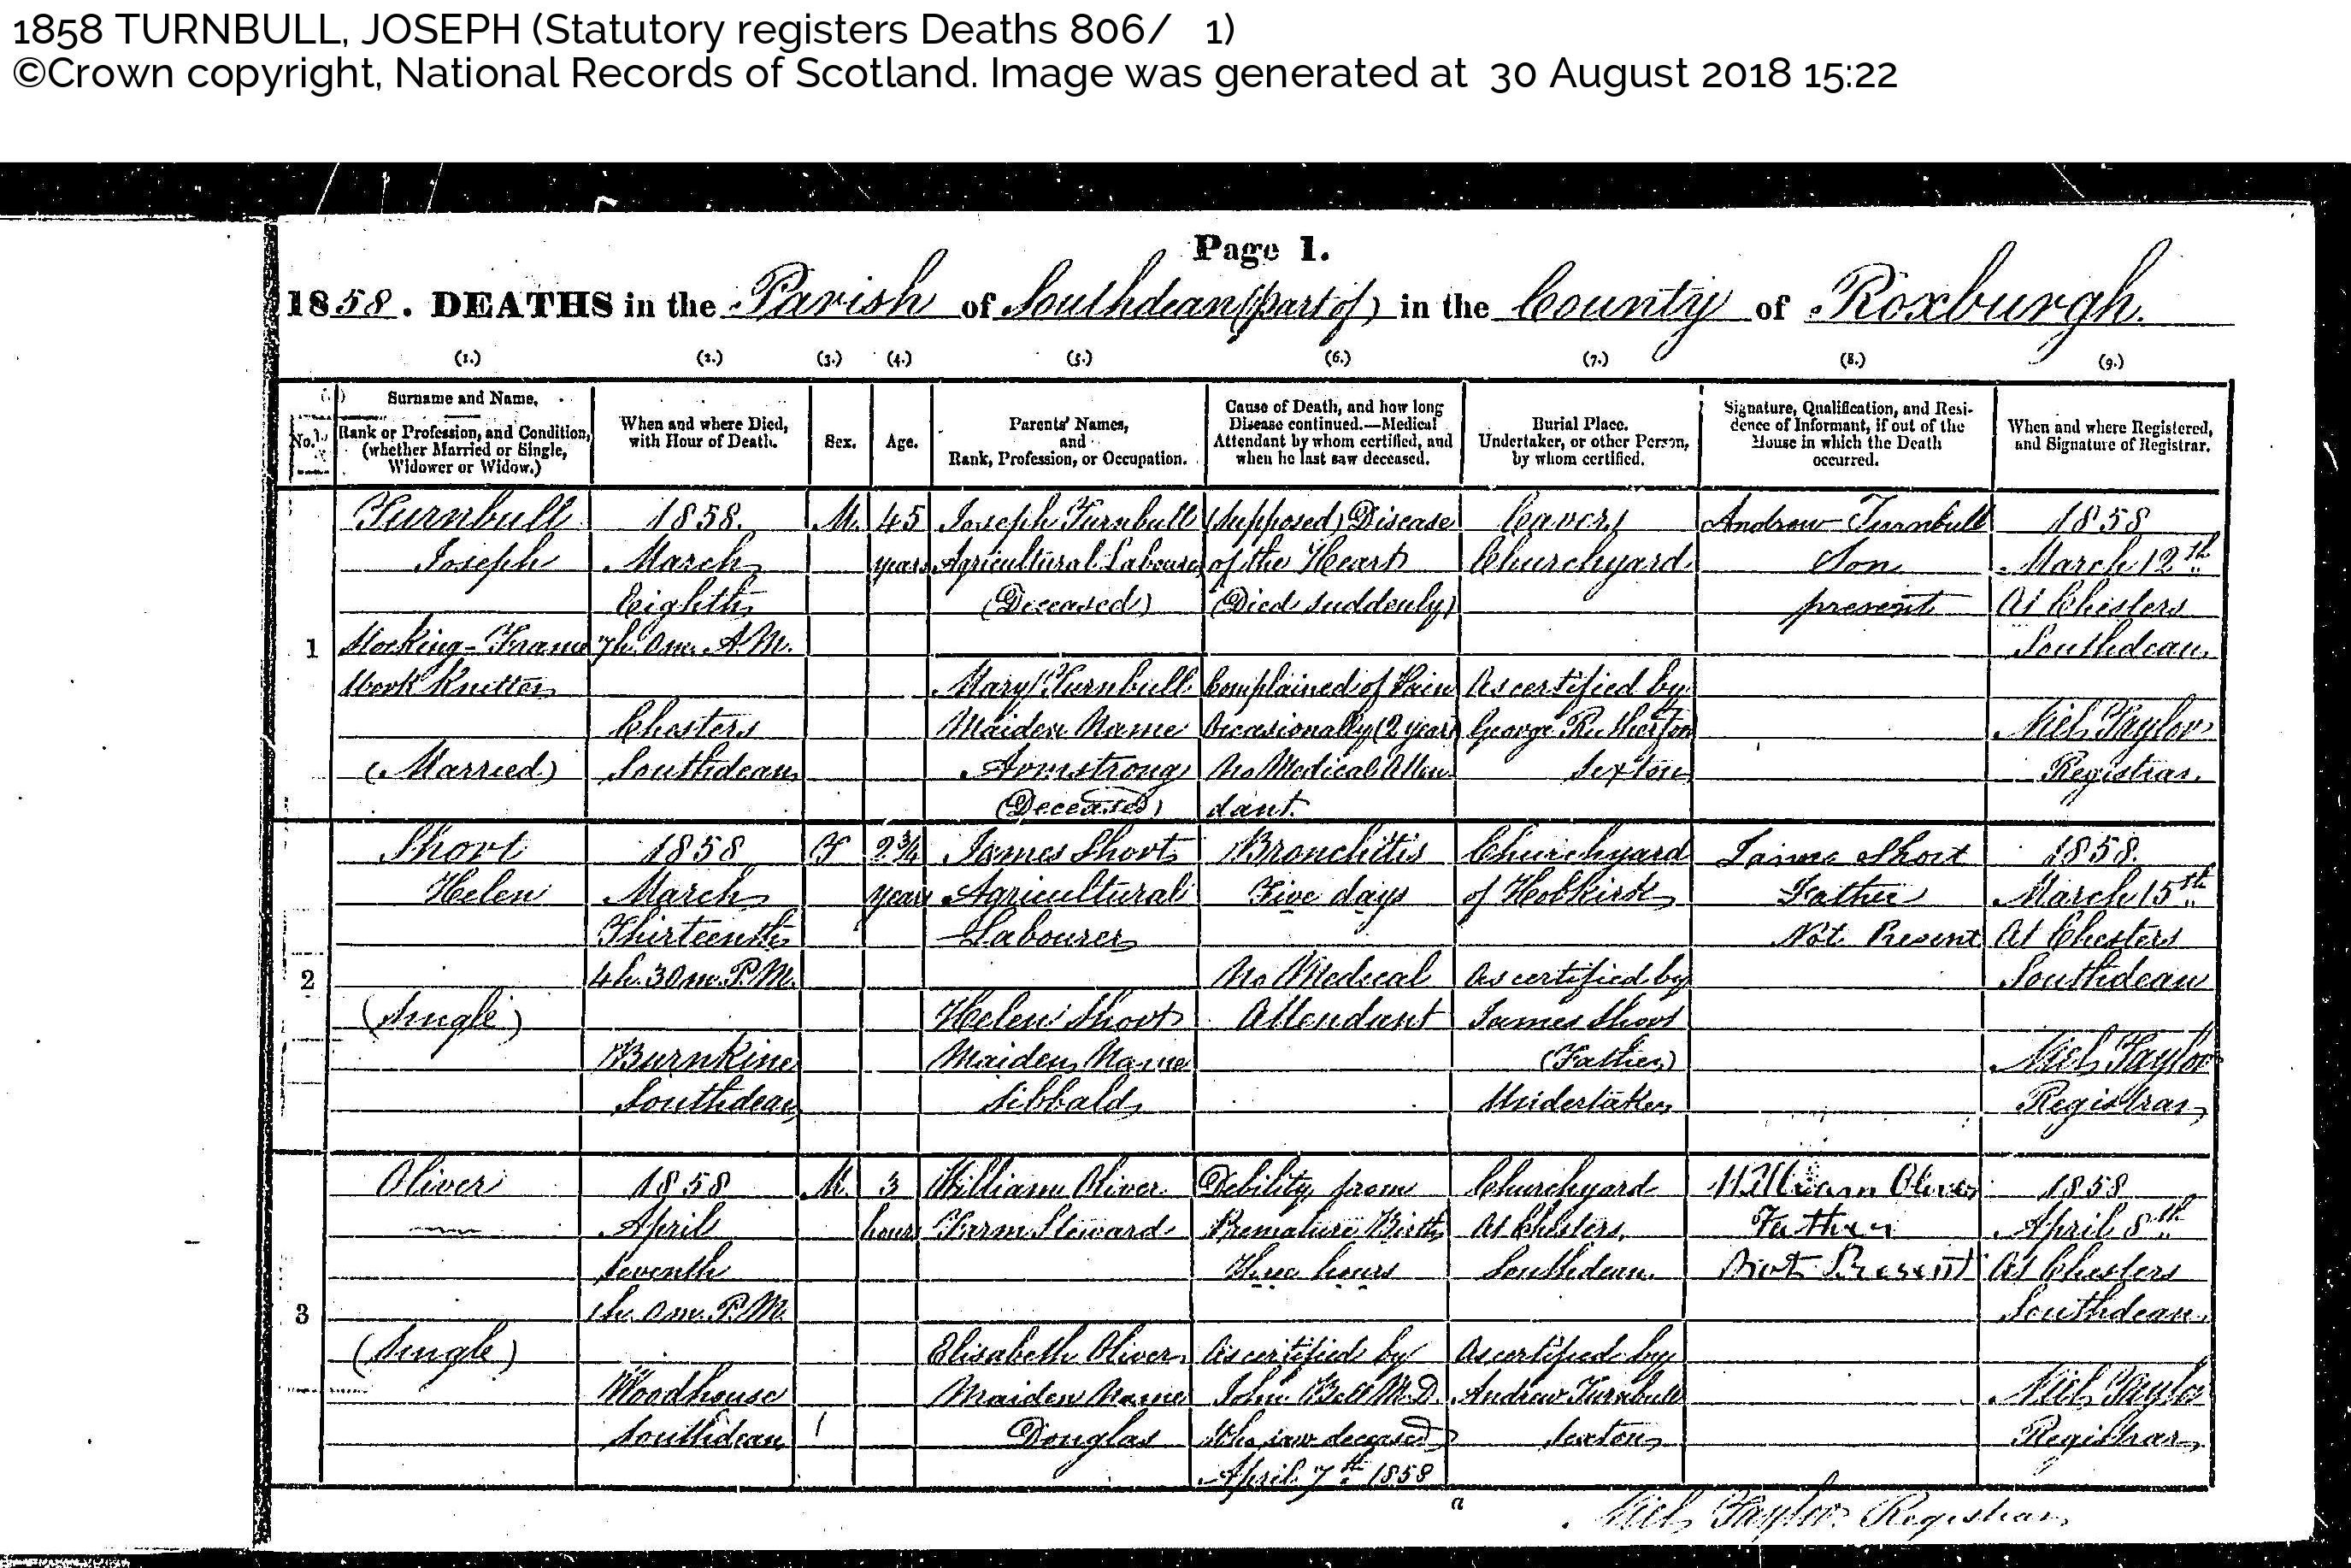 1858 TURNBULL, JOSEPH (Statutory registers Deaths 806/ 1)
©Crown copyright, National Records of Scotland. Image was generated at 30 August 2018 15:22
Page 1.
1858. DEATHS in the Parish of Southdean (part of) in the County of Roxburgh.
(1.) (2.) (3.) (4.) (5.) (6.) (7.) (8.) (9.)
No.
Surname and Name,
Rank or Profession, and Condition,
(whether Married or Single,
Widower or Widow.)
When and where Died,
with Hour of Death.
Sex.
Age.
Parents' Names,
and
Rank, Profession, or Occupation.
Cause of Death, and how long
Disease continued.—Medical
Attendant by whom certified, and
when he last saw deceased.
Burial Place.
Undertaker, or other Person,
by whom certified.
Signature, Qualification, and Resi-
dence of Informant, if out of the
House in which the Death
occurred.
When and where Registered,
and Signature of Registrar.
1
Turnbull
Joseph
Stocking-Frame
Work Knitter
(Married)
1858.
March
Eighth
7h. 0m. A.M.
Chesters
Southdean
M.
45
years
Joseph Turnbull
Agricultural Labourer
(Deceased)
Mary Turnbull
Maiden Name
Armstrong
(Deceased)
(Supposed) Disease
of the Heart
(Died suddenly)
Complained of Pain
Occasionally (2 years)
No Medical Atten
dant.
Cavers
Churchyard
As certified by
George Rutherford
Sexton
Andrew Turnbull
Son
present
1858
March 12th
At Chesters
Southdean
Niel Taylor
Registrar.
2
Short
Helen
(Single)
1858
March
Thirteenth
4h. 30m. P.M.
Burnkine
Southdean
F
2 3/4
years
James Short
Agricultural
Labourer
Helen Short
Maiden Name
Sibbald
Bronchitis
Five days
No Medical
Attendant
Churchyard
of Hobkirk
As certified by
James Short
(Father)
Undertaker
James Short
Father
Not Present
1858.
March 15th
At Chesters
Southdean
Niel Taylor
Registrar
3
Oliver
(Single)
1858
April
Seventh
1h. 0m. P.M.
Woodhouse
Southdean
M.
3
hours
William Oliver
Farm Steward
Elisabeth Oliver
Maiden Name
Douglas
Debility from
Premature Birth
Three hours
As certified by
John Bell M.D.
Who saw deceased
April 7th 1858
Churchyard
At Chesters,
Southdean.
As certified by
Andrew Turnbull
Sexton
William Oliver
Father
Not Present
1858
April 8th
At Chesters
Southdean
Niel Taylor
Registrar
a
Niel Taylor Registrar